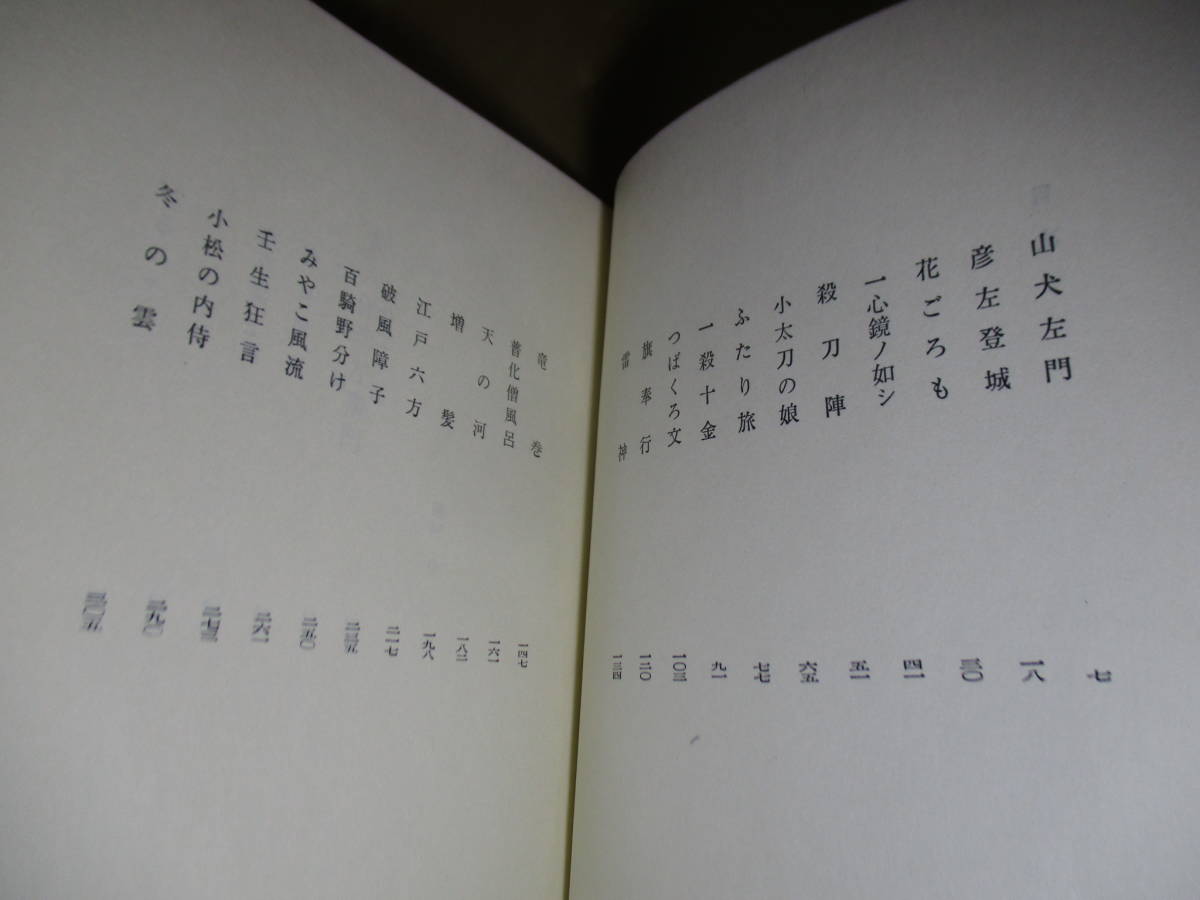 山犬左門 七
彦左登城 一八
花ごろも 三〇
一心鏡ノ如シ 四一
殺刀陣 五一
小太刀の娘 六五
ふたり旅 七七
一殺十金 九一
つばくろ文 一〇三
旗奉行 一二〇
雷神 一三四
竜巻 一四七
普化僧風呂 一六一
天の河 一八二
増髪 一九八
江戸六方 二一七
破風障子 二三五
百騎野分け 二五〇
みやこ風流 二六一
壬生狂言 二七三
小松の内侍 二九〇
冬の雲 三〇五